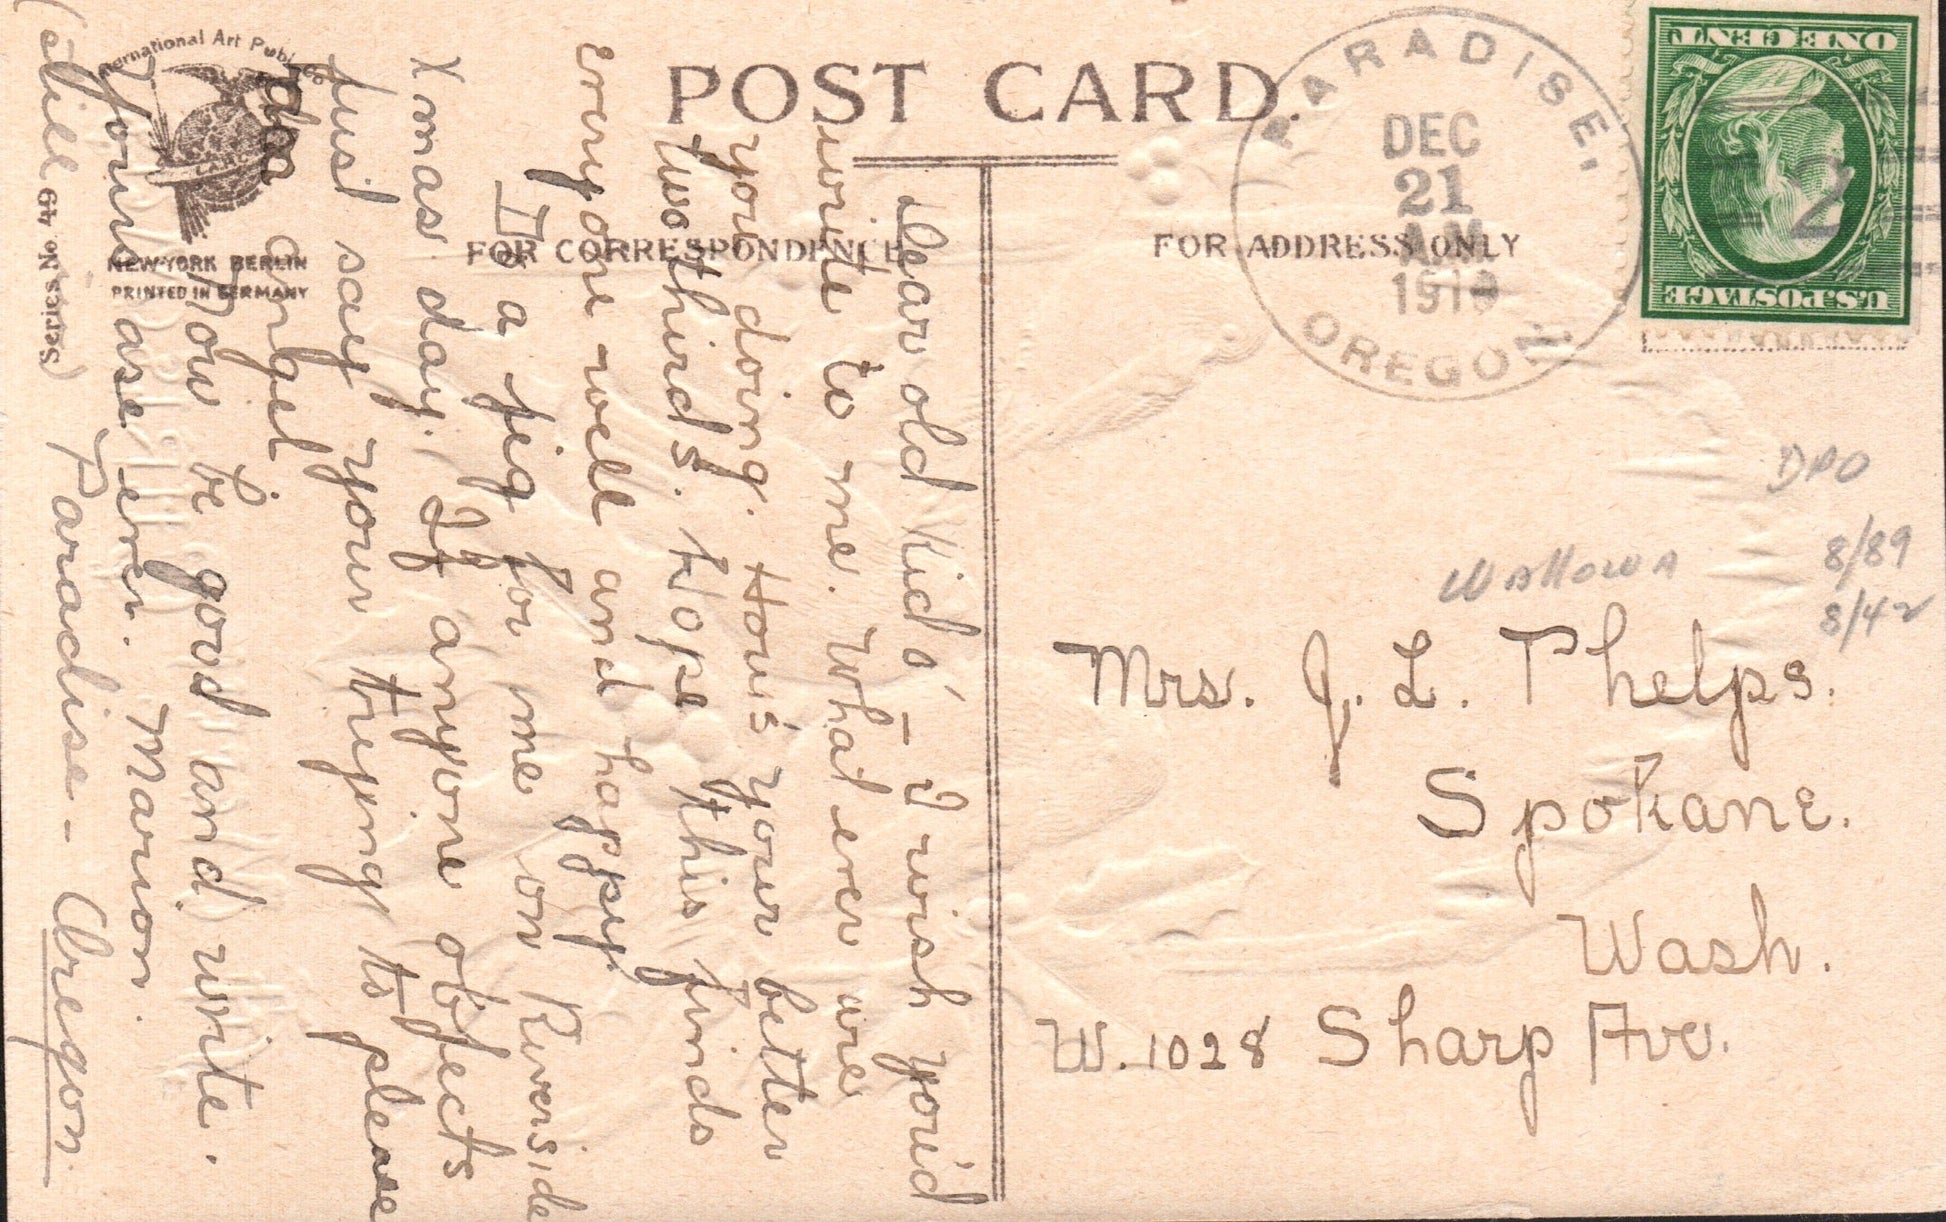 POST CARD.
FOR CORRESPONDENCE
FOR ADDRESS ONLY
International Art Publ. Co.
NEW YORK BERLIN
PRINTED IN GERMANY
Series No. 49
PARADISE,
DEC
21
AM
OREGON
ONE CENT
U.S. POSTAGE
2
DPO
8/89
8/42
Wallowa
Mrs. J. L. Phelps.
Spokane.
Wash.
W. 1028 Sharp Ave.
Dear old kid's – I wish you'd
write to me. What ever are
you doing. How's your better
two thirds. Hope this finds
everyone well and happy.
Do a jig for me on Riverside
Xmas day. If anyone objects
just say your trying to please
an angel
Now be good and write.
Yours as ever. Marion.
(Still Paradise – Oregon.